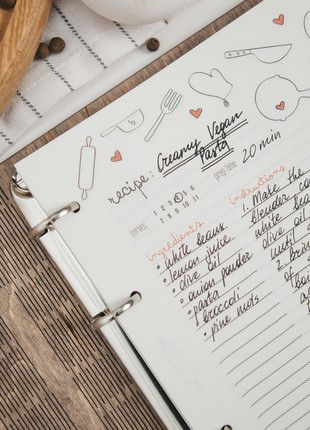 recipe: Creamy Vegan
Pasta
serves 1 2 3 4 5 6
7 8 9 10 11
prep time 20 min
ingredients
• white beans
• lemon juice
• olive oil
• onion powder
• pasta
• broccoli
• pine nuts
instructions
1. Make the
blender co
white bea
olive oil
unti
2. Brin
of